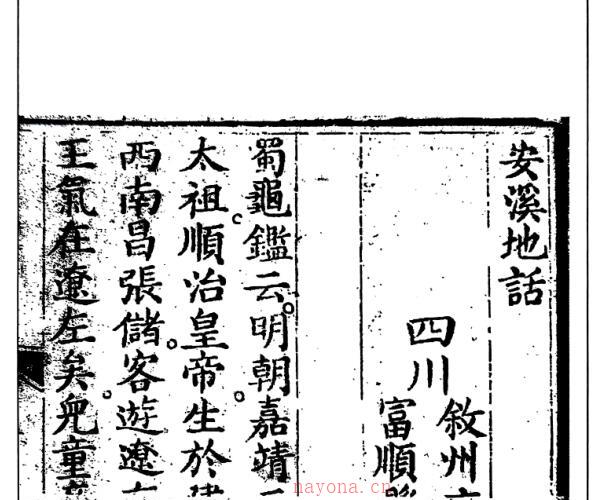 安溪地話
四川
敘州
富順
蜀龜鑑云。明朝嘉靖
太祖。順治皇帝。生於建
西南昌張儲。客遊遼
王氣在遼左矣。兒童
nayona.cn